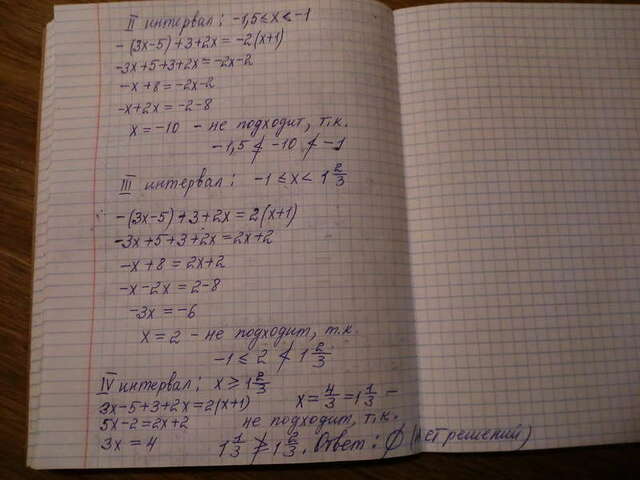 II интервал: -1,5 ≤ x < -1
-(3x-5)+3+2x = -2(x+1)
-3x+5+3+2x = -2x-2
-x+8 = -2x-2
-x+2x = -2-8
x = -10 - не подходит, т.к.
-1,5 ≰ -10 ≮ -1
III интервал: -1 ≤ x < 1 2/3
-(3x-5)+3+2x = 2(x+1)
-3x+5+3+2x = 2x+2
-x+8 = 2x+2
-x-2x = 2-8
-3x = -6
x = 2 - не подходит, т.к.
-1 ≤ 2 ≮ 1 2/3
IV интервал: x ≥ 1 2/3
3x-5+3+2x = 2(x+1)
5x-2 = 2x+2
3x = 4
x = 4/3 = 1 1/3 -
не подходит, т.к.
1 1/3 ≱ 1 2/3. Ответ: ∅ (нет решений)